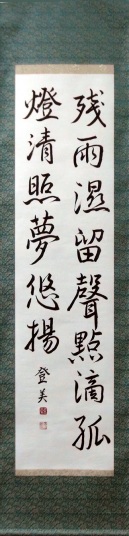 残雨濕留聲點滴孤
燈清照夢悠揚
登美